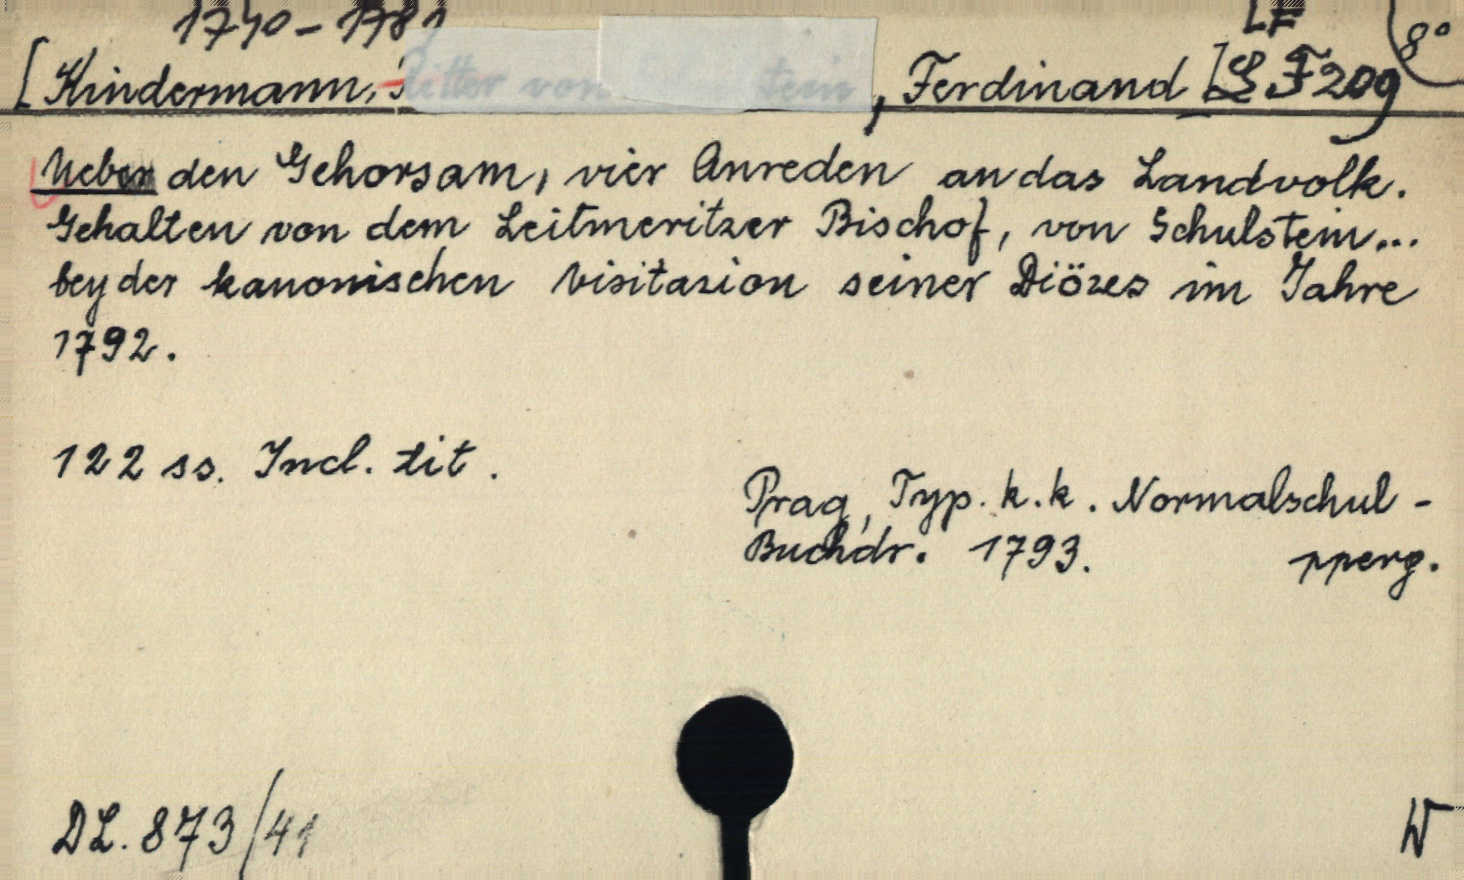 1740-1781 LF 8°
[Kindermann, Ritter von tein, Ferdinand] LF 209
Ueber den Gehorsam, vier Anreden an das Landvolk.
Gehalten von dem Leitmeritzer Bischof, von Schulstein...
bey der kanonischen Visitazion seiner Diözes im Jahre
1792.
122 ss. Incl. tit.
Prag, Typ. k.k. Normalschul-
Buchdr. 1793. pperg.
DL. 873/41 W